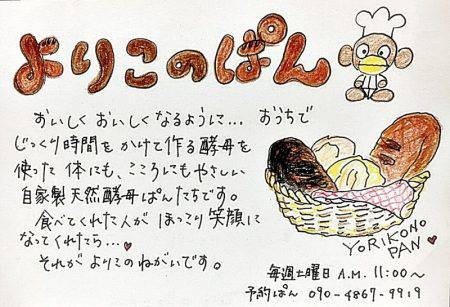 よりこのぱん
おいしく おいしく なるように... おうちで
じっくり時間を かけて作る酵母を
使った 体にも、こころにもやさしい
自家製天然酵母ぱんたちです。
食べてくれた人が ほっこり笑顔に
なってくれたら...♥
それが よりこのねがいです。
YORIKONO
PAN ♥
毎週土曜日 A.M. 11:00〜
予約ぱん 090-4867-9919